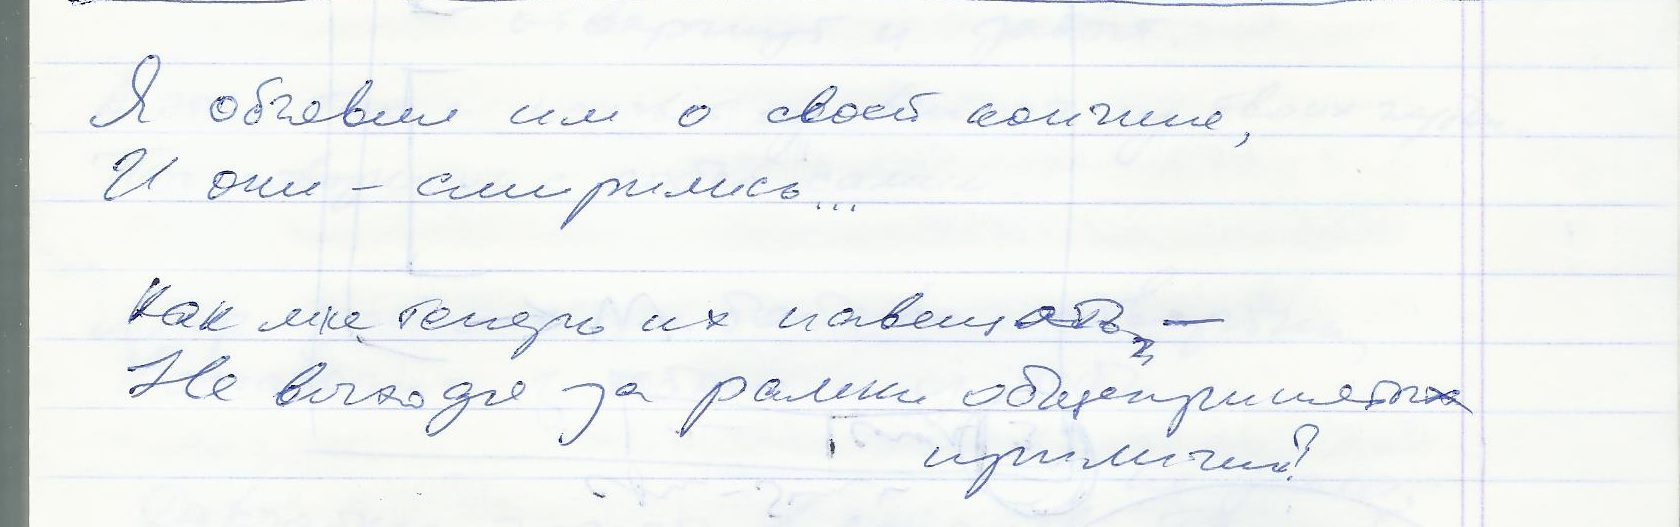 Я объявил им о своей кончине,
И они – смирились...
Как мне теперь их навещать, –
Не выходя за рамки общепринятых
приличий?